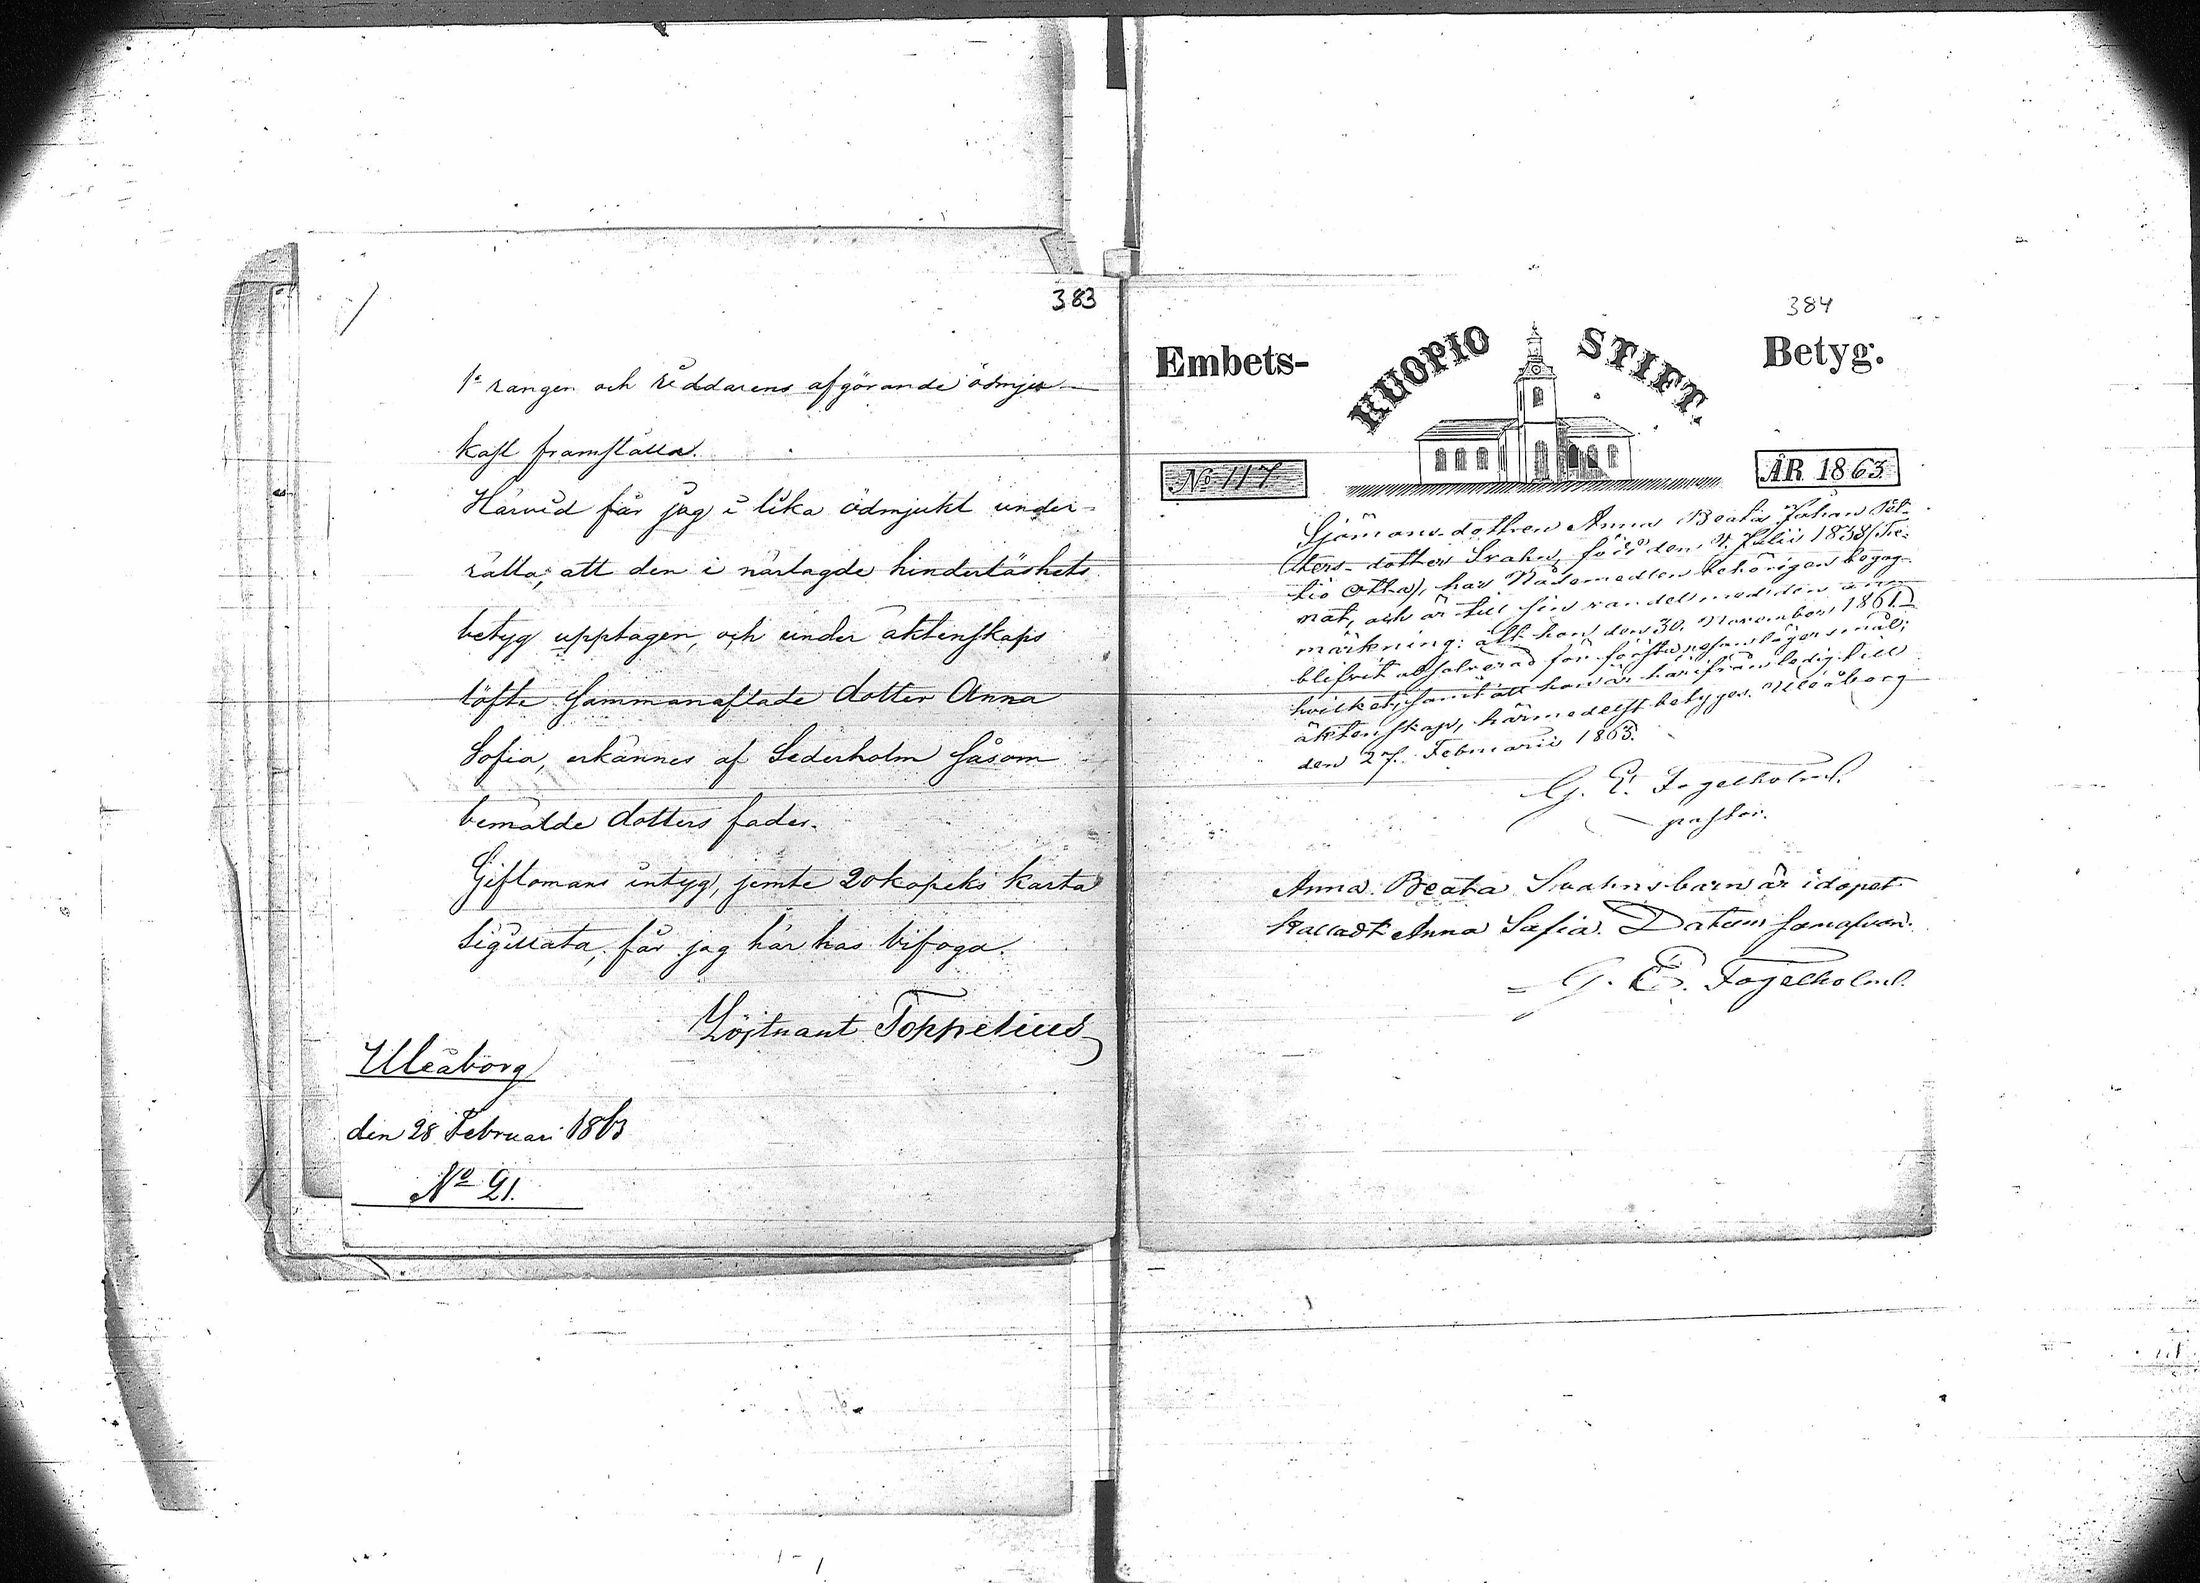 383
1:a rangen och riddarens afgörande ödmju-
kast framställa.
Härvid får jag i lika ödmjukt under-
rätta, att den i närlagde hinderlöshets
betyg upptagen, och under äktenskaps
löfte sammanaflade dotter Anna
Sofia, erkännes af Sederholm såsom
bemälde dotters fader.
Giftomans intyg, jemte 20 kopeks karta
sigillata, får jag här hos bifoga.
Löjtnant Toppelius
Uleåborg
den 28 Februari 1863
No 21.
384
Embets-
KUOPIO STIFT.
Betyg.
No 117
ÅR 1863
Sjömans-dottren Anna Beata Johan
dotter Svahn, född den 4. Julii 1838 (Tre-
tio otta), har Nådemedlen behörigen begag-
nat, och är till sin vandel med den an-
märkning: att hon den 30. November 1861
blifvit absolverad för första resans lägersmål;
hvilket, samt att hon är härifrån ledig till
äktenskap, härmedelst betygas. Uleåborg
den 27. Februarii 1863.
G. E. Fogelholm.
pastor.
Anna Beata Svahns barn är i dopet
kalladt Anna Sofia. Datum som ofvan.
G. E. Fogelholm.